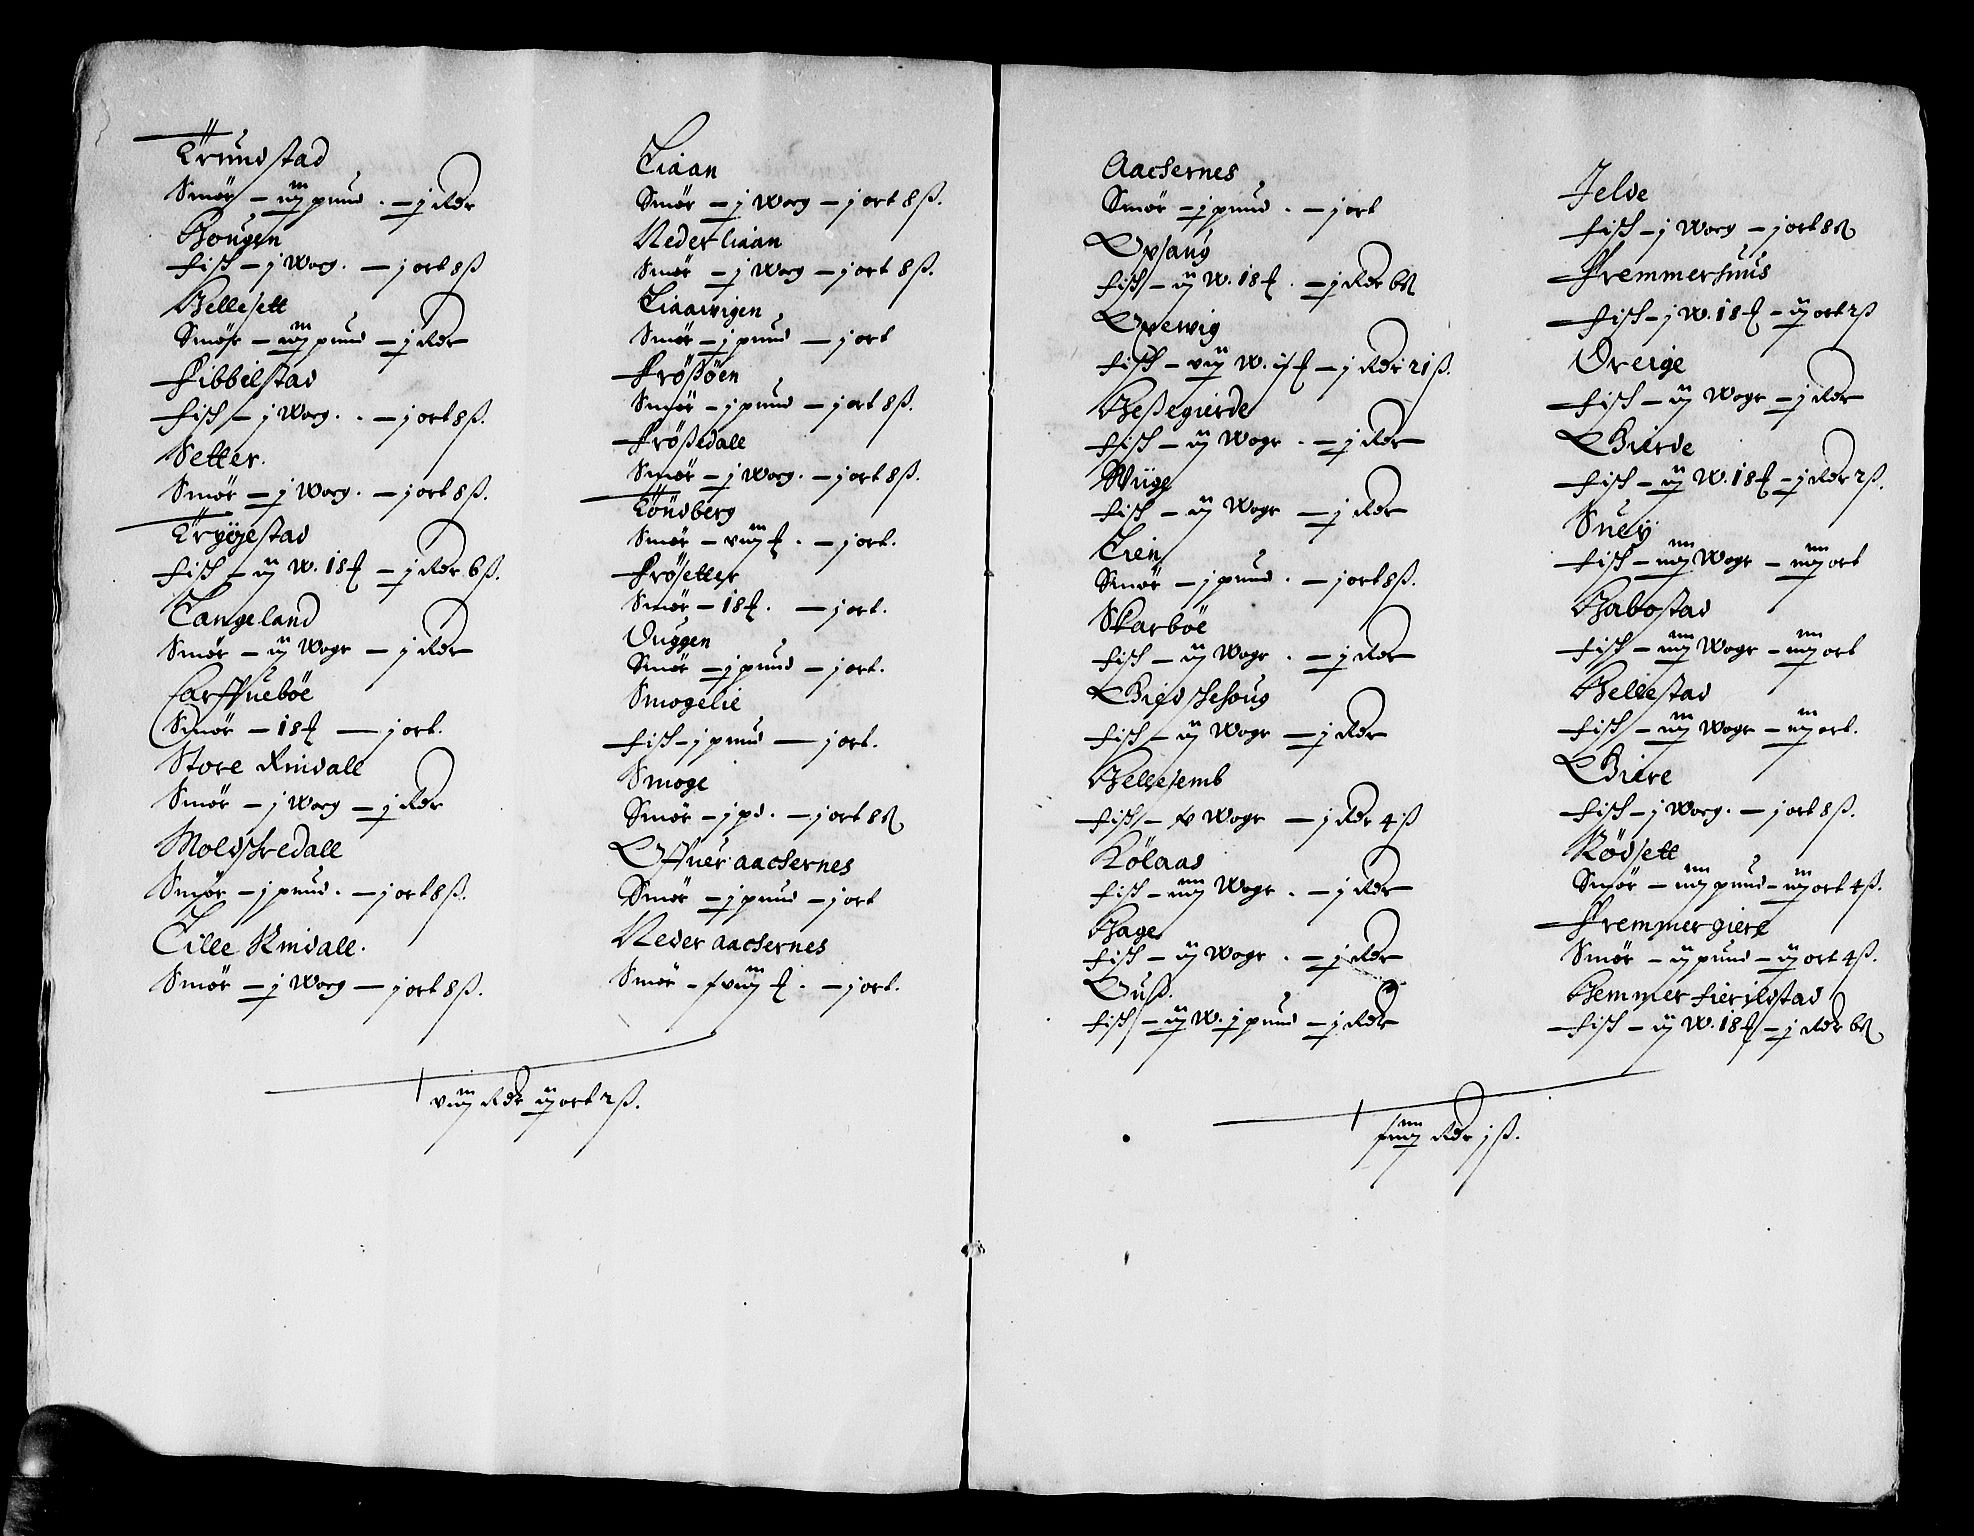 Trundstad
Smör - iij pund. - j Rdr
Hougen
fisk - j Worg. - j ort 8 ß
Hellesett
Smör - iiij pund - j Rdr
Fibbelstad
fisk - j Worg. - j ort 8 ß.
Setter.
Smör - j Worg. - j ort 8 ß.
Tryggestad
fisk - ij W. 18 ₰ - j Rdr 6 ß.
Langeland
Smör - ij Wogr - j Rdr
Carffueböe
Smör - 18 ₰ - j ort.
Store Rindall
Smör - j Worg - j Rdr
Moldskredall
Smör - j pund. - j ort 8 ß.
Lille Rindall.
Smör - j Worg - j ort 8 ß.
Liaan
Smör - j Worg - j ort 8 ß.
Neder liaan
Smör - j Worg - j ort 8 ß.
Liaawigen
Smör - j pund - j ort
Frößöen
Smör - j pund - j ort 8 ß.
Frößedall
Smör - j Worg. - j ort 8 ß.
Töndberg
Smör - viij ₰. - j ort.
Frösetter
Smör - 18 ₰. - j ort.
Duggen
Smör - j pund - j ort.
Smogelie
fisk - j pund - j ort.
Smoge
Smör - j pd. - j ort 8 ß
Offuer aackernes
Smör - j pund - j ort
Neder aackernes
Smör - xviij ₰. - j ort.
viij Rdr ij ort 2 ß.
Aackernes
Smör - j pund. - j ort
Opsaug
fisk - ij W. 18 ₰. - j Rdr 6 ß
Opewig
fisk - viij W. - j Rdr 21 ß.
Heßegierde
fisk - ij Wogr. - j Rdr
Wiige
fisk - ij Wogr - j Rdr
Lien
Smör - j pund. - j ort 8 ß.
Skarböe
fisk - ij Wogr. - j Rdr
Giedskehoug
fisk - ij Wogr - j Rdr
Hellesemb
fisk - Wogr - j Rdr 4 ß
Kölaas
fisk - iiij Wogr. - j Rdr
Hage
fisk - ij Wogr. - j Rdr
Guß.
fisk - ij W. j pund - j Rdr
Jelde
fisk - j Worg - j ort 8 ß
Fremmerhuus
fisk - j W. 18 ₰ - ij ort 2 ß
Dreige
fisk - ij Wogr - j Rdr
Gierde
fisk - ij W. 18 ₰ - j Rdr 2 ß.
Suey
fisk - iiij Wogr - iiij ort
Habostad
fisk - iiij Wogr - iiij ort
Hellestad
fisk - iij Wogr - iij ort.
Giere
fisk - j Worg. - j ort 8 ß.
Rödsett
Smör - iiij pund - iij ort 4 ß.
Fremmergiere
Smör - ij pund - ij ort 4 ß.
Hemmer fierildstad
fisk - ij W. 18 ₰ - j Rdr 6 ß
xiiij Rdr j ß.